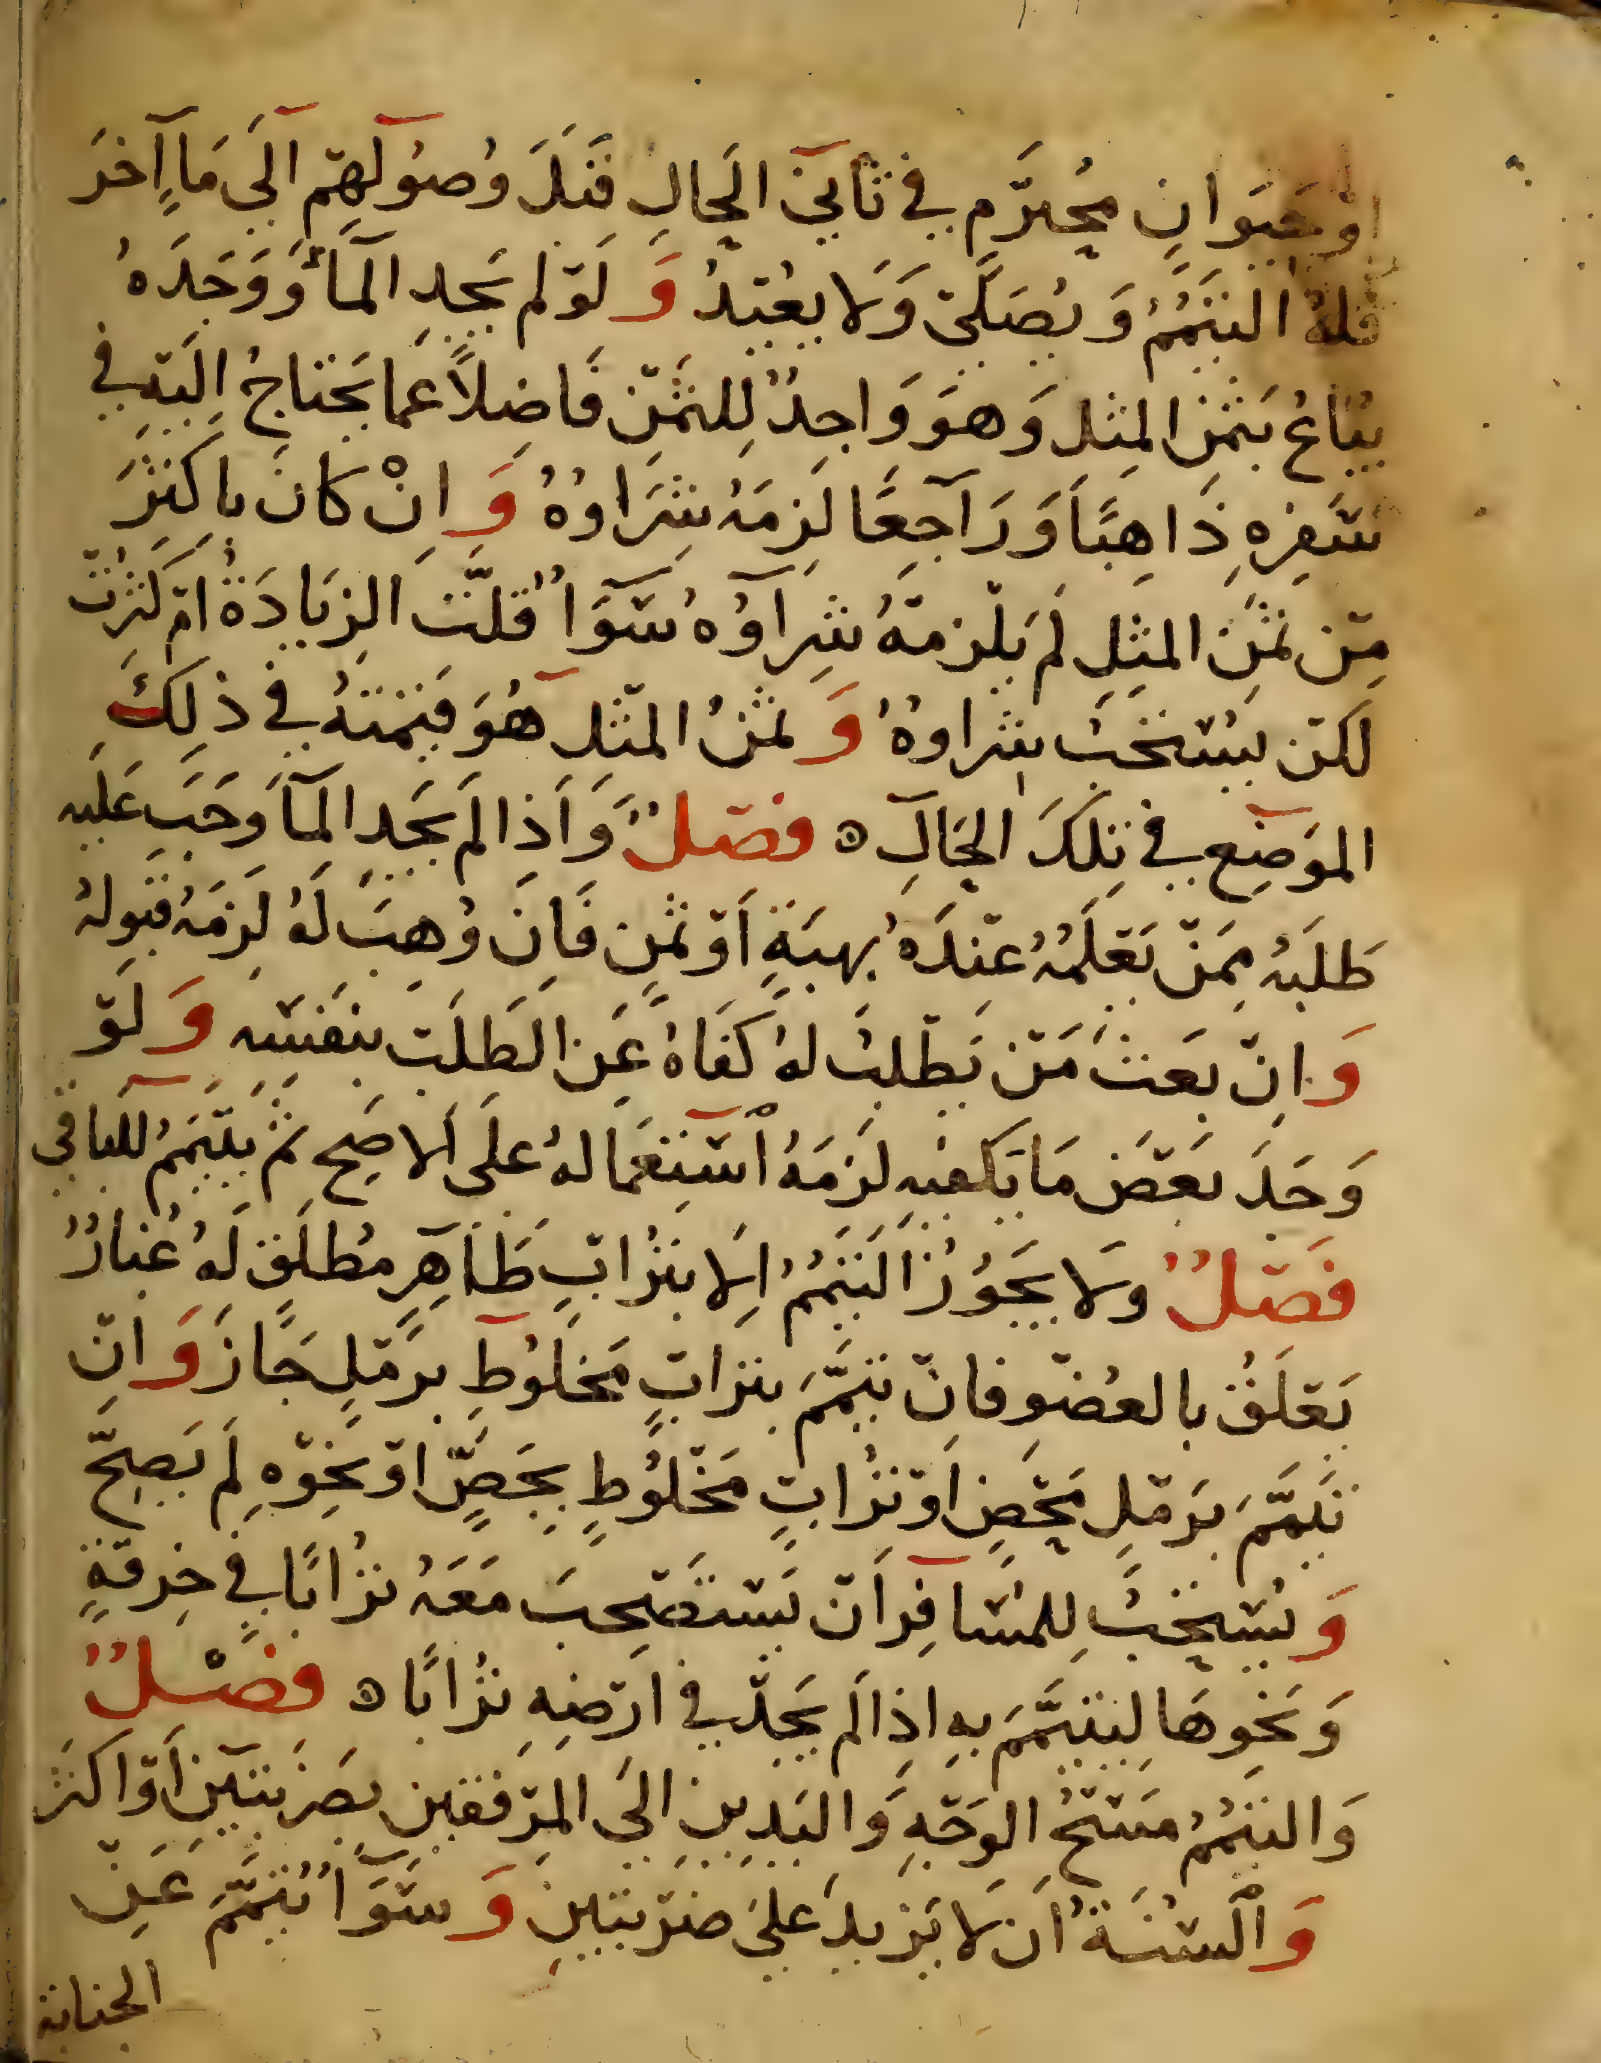 أَوْ حَيَوَانٍ مُحْتَرَمٍ فِي ثَانِي الْحَالِ قَبْلَ وُصُولِهِمْ إِلَى مَاءٍ آخَرَ
فَلَهُ التَّيَمُّمُ وَيُصَلِّي وَلَا يُعِيدُ وَلَوْ لَمْ يَجِدِ الْمَاءَ وَوَجَدَهُ
يُبَاعُ بِثَمَنِ الْمِثْلِ وَهُوَ وَاجِدٌ لِلثَّمَنِ فَاضِلًا عَمَّا يَحْتَاجُ إِلَيْهِ فِي
سَفَرِهِ ذَاهِبًا وَرَاجِعًا لَزِمَهُ شِرَاوُهُ وَإِنْ كَانَ بِأَكْثَرَ
مِنْ ثَمَنِ الْمِثْلِ لَمْ يَلْزَمْهُ شِرَاؤُهُ سَوَاءٌ قَلَّتِ الزِّيَادَةُ أَمْ كَثُرَتْ
لَكِنْ يُسْتَحَبُّ شِرَاوُهُ وَثَمَنُ الْمِثْلِ هُوَ قِيمَتُهُ فِي ذَلِكَ
الْمَوْضِعِ فِي تِلْكَ الْحَالِ ه فَصْلٌ وَإِذَا لَمْ يَجِدِ الْمَاءَ وَجَبَ عَلَيْهِ
طَلَبُهُ مِمَّنْ يَعْلَمُهُ عِنْدَهُ بِهِبَةٍ أَوْ ثَمَنٍ فَإِنْ وُهِبَ لَهُ لَزِمَهُ قَبُولُهُ
وَإِنْ بَعَثَ مَنْ يَطْلُبُ لَهُ كَفَاهُ عَنِ الطَّلَبِ بِنَفْسِهِ وَلَوْ
وَجَدَ بَعْضَ مَا يَكْفِيهِ لَزِمَهُ اسْتِعْمَالُهُ عَلَى الْأَصَحِّ ثُمَّ يَتَيَمَّمُ لِلْبَاقِي
فَصْلٌ وَلَا يَجُوزُ التَّيَمُّمُ إِلَّا بِتُرَابٍ طَاهِرٍ مُطْلَقٍ لَهُ غُبَارٌ
يَعْلَقُ بِالْعُضْوِ فَإِنْ تَيَمَّمَ بِتُرَابٍ مَخْلُوطٍ بِرَمْلٍ جَازَ وَإِنْ
تَيَمَّمَ بِرَمْلٍ مَحْضٍ أَوْ تُرَابٍ مَخْلُوطٍ بِجَصٍّ أَوْ نَحْوِهِ لَمْ يَصِحَّ
وَيُسْتَحَبُّ لِلْمُسَافِرِ أَنْ يَسْتَصْحِبَ مَعَهُ تُرَابًا فِي خِرْقَةٍ
وَنَحْوِهَا لِيَتَيَمَّمَ بِهِ إِذَا لَمْ يَجِدْ فِي أَرْضِهِ تُرَابًا ه فَصْلٌ
وَالتَّيَمُّمُ مَسْحُ الْوَجْهِ وَالْيَدَيْنِ إِلَى الْمِرْفَقَيْنِ بِضَرْبَتَيْنِ أَوْ أَكْثَرَ
وَالسُّنَّةُ أَنْ لَا يَزِيدَ عَلَى ضَرْبَتَيْنِ وَسَوَاءٌ تَيَمَّمَ عَنِ
الجنابة